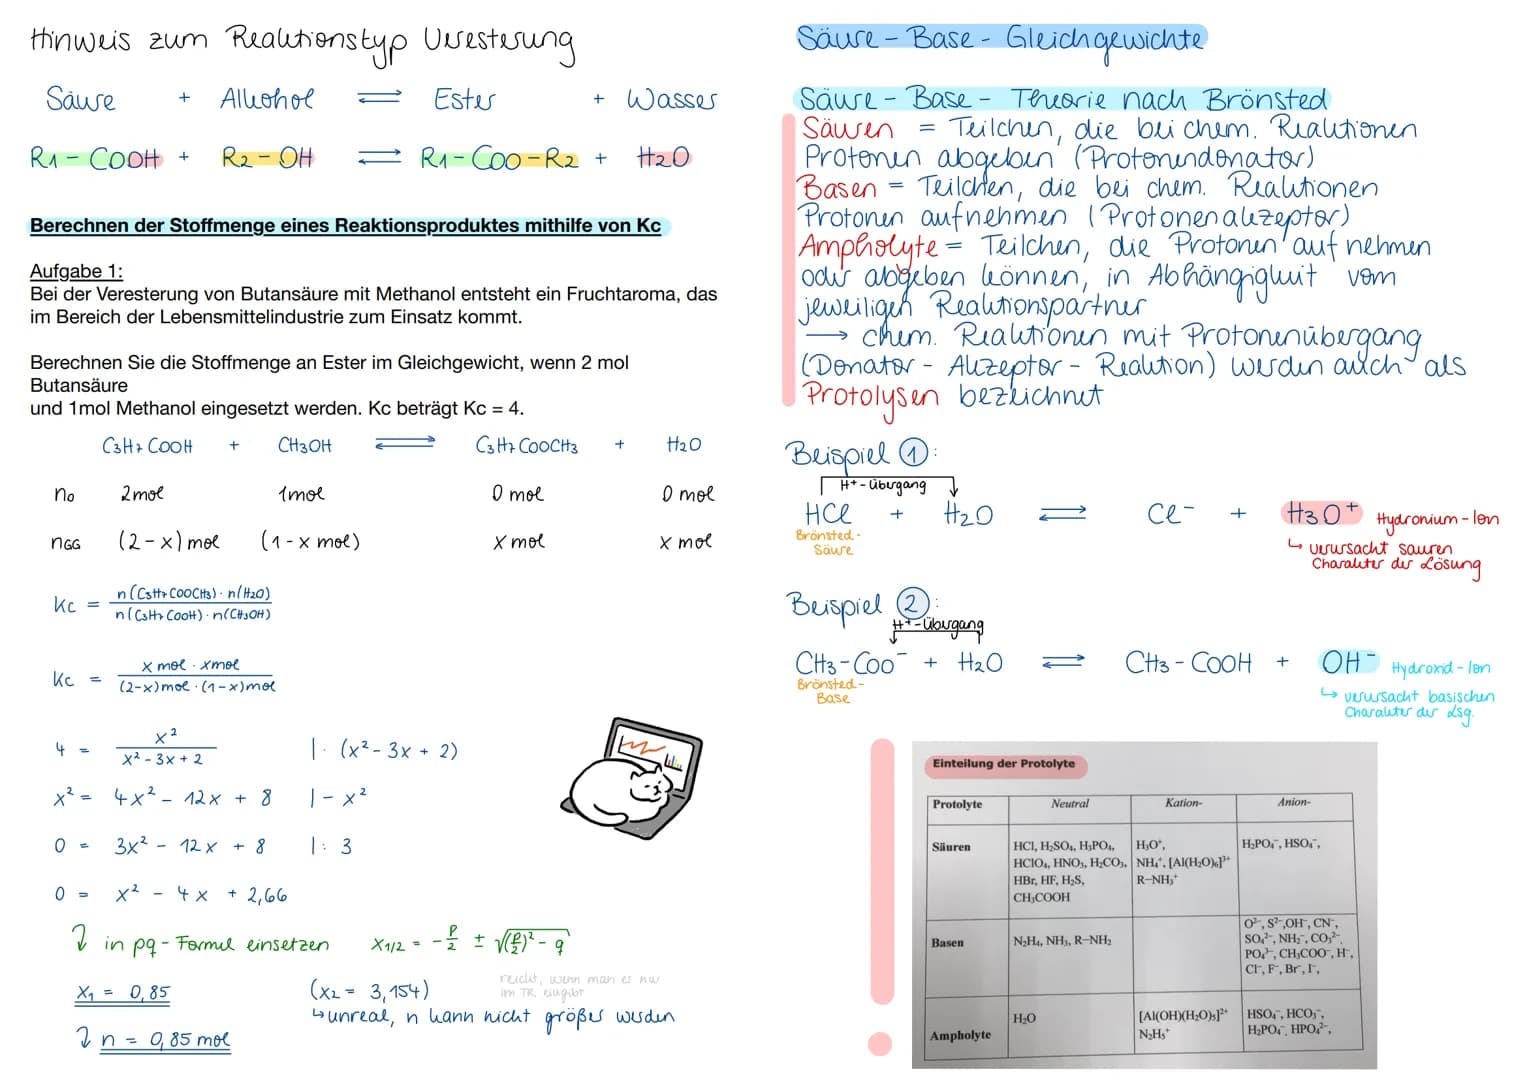 Hinweis zum Reaktionstyp Veresterung
Säure + Alkohol ⇌ Ester + Wasser
R1 - COOH + R2 - OH ⇌ R1 - COO - R2 + H2O
Berechnen der Stoffmenge eines Reaktionsproduktes mithilfe von Kc
Aufgabe 1:
Bei der Veresterung von Butansäure mit Methanol entsteht ein Fruchtaroma, das
im Bereich der Lebensmittelindustrie zum Einsatz kommt.
Berechnen Sie die Stoffmenge an Ester im Gleichgewicht, wenn 2 mol
Butansäure
und 1mol Methanol eingesetzt werden. Kc beträgt Kc = 4.
C3H7COOH + CH3OH ⇌ C3H7COOCH3 + H2O
n0 2mol 1mol 0 mol 0 mol
nGG (2-x) mol (1-x mol) x mol x mol
Kc = n(C3H7COOCH3) · n(H2O)
n(C3H7COOH) · n(CH3OH)
Kc = x mol · x mol
(2-x) mol · (1-x) mol
4 = x²
x² - 3x + 2
| · (x² - 3x + 2)
x² = 4x² - 12x + 8 | - x²
0 = 3x² - 12x + 8 | : 3
0 = x² - 4x + 2,66
↷ in pq - Formel einsetzen x1/2 = - p/2 ± √(p/2)² - q
reicht, wenn man es nur
im TR eingibt
x1 = 0,85 (x2 = 3,154)
↳ unreal, n kann nicht größer werden
↷ n = 0,85 mol
Säure - Base - Gleichgewichte
Säure - Base - Theorie nach Brönsted
Säuren = Teilchen, die bei chem. Reaktionen
Protonen abgeben (Protonendonator)
Basen = Teilchen, die bei chem. Reaktionen
Protonen aufnehmen (Protonenakzeptor)
Ampholyte = Teilchen, die Protonen aufnehmen
oder abgeben können, in Abhängigkeit vom
jeweiligen Reaktionspartner
→ chem. Reaktionen mit Protonenübergang
(Donator - Akzeptor - Reaktion) werden auch als
Protolysen bezeichnet
Beispiel 1:
H+ - Übergang
HCl + H2O ⇌ Cl⁻ + H3O⁺ Hydronium - Ion
Brönsted-
Säure
↳ verursacht sauren
Charakter der Lösung
Beispiel 2:
H+ - Übergang
CH3 - COO⁻ + H2O ⇌ CH3 - COOH + OH⁻ Hydroxid - Ion
Brönsted-
Base
↳ verursacht basischen
Charakter der Lsg.
Einteilung der Protolyte
Protolyte Neutral Kation- Anion-
Säuren HCl, H₂SO₄, H₃PO₄, H₃O⁺, H₂PO₄⁻, HSO₄⁻,
HClO₄, HNO₃, H₂CO₃, NH₄⁺, [Al(H₂O)₆]³⁺
HBr, HF, H₂S, R–NH₃⁺
CH₃COOH
Basen N₂H₄, NH₃, R–NH₂ O²⁻, S²⁻, OH⁻, CN⁻,
SO₄²⁻, NH₂⁻, CO₃²⁻,
PO₄³⁻, CH₃COO⁻, H⁻,
Cl⁻, F⁻, Br⁻, I⁻,
Ampholyte H₂O [Al(OH)(H₂O)₅]²⁺ HSO₄⁻, HCO₃⁻,
N₂H₅⁺ H₂PO₄⁻, HPO₄²⁻,